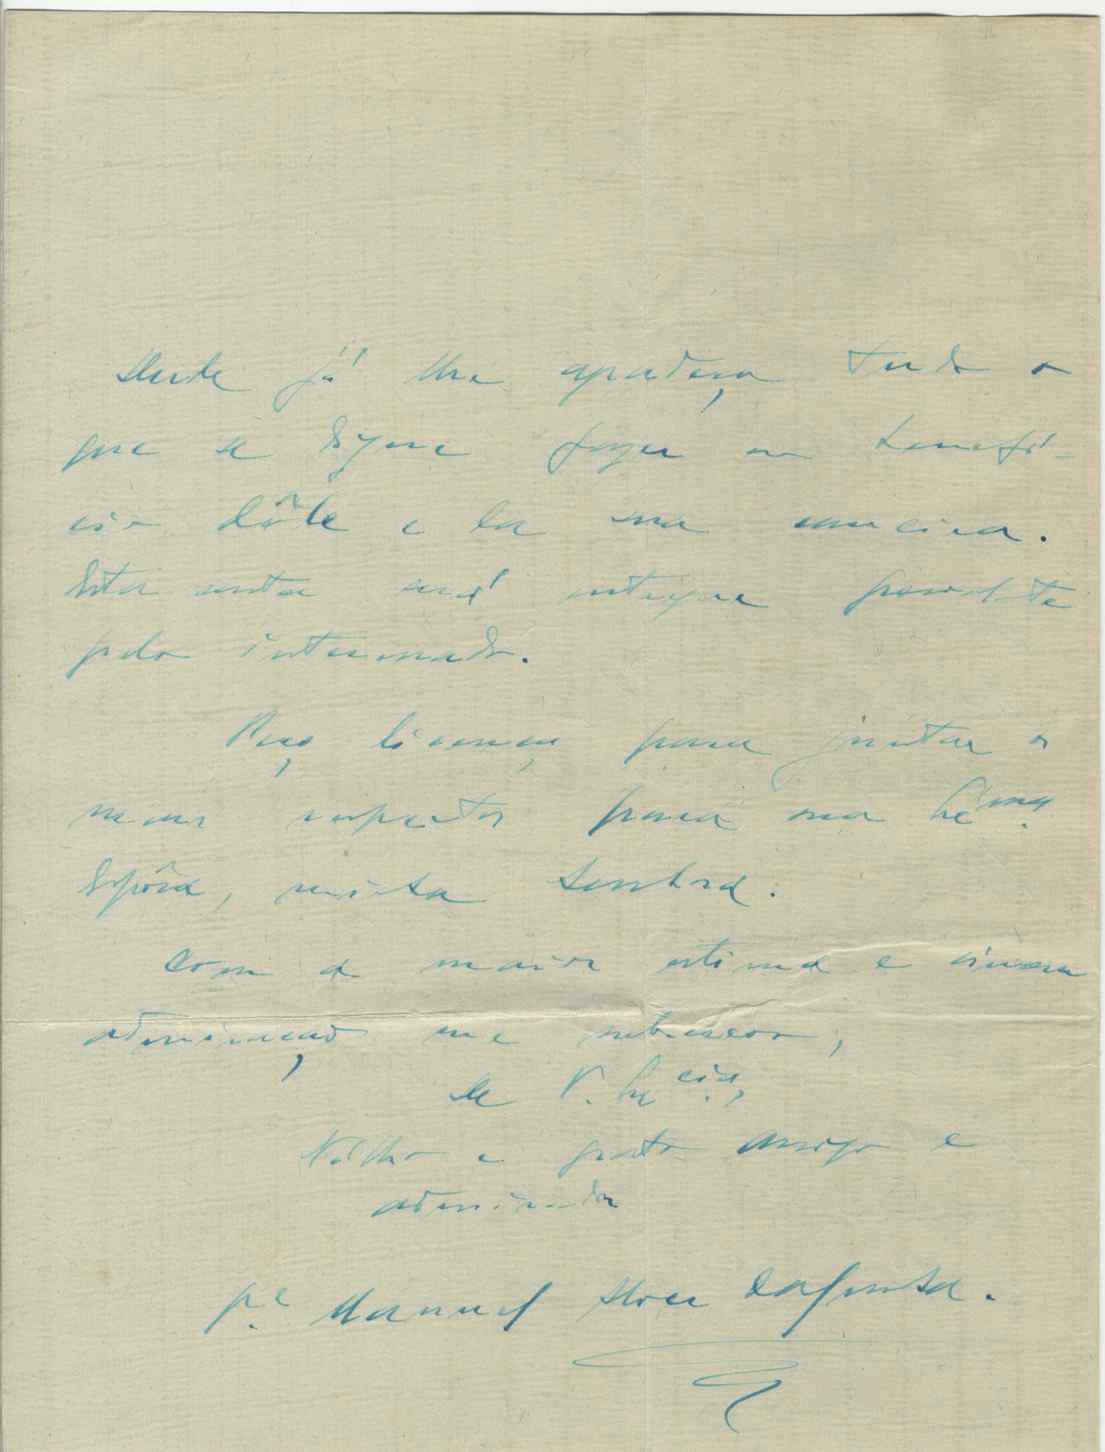 Desde já lhe agradeço tudo o
que se digne fazer em benefí-
cio dêle e da sua
Esta carta será entregue pessoalmte
pelo interessado.
Peço licença para juntar os
meus respeitos para sua Exma.
Espôsa, minha Senhora.
Com a maior estima e sincera
admiração me subscrevo,
De V. Excia.,
Velho e grato amigo e
admirador
Pe. Manuel